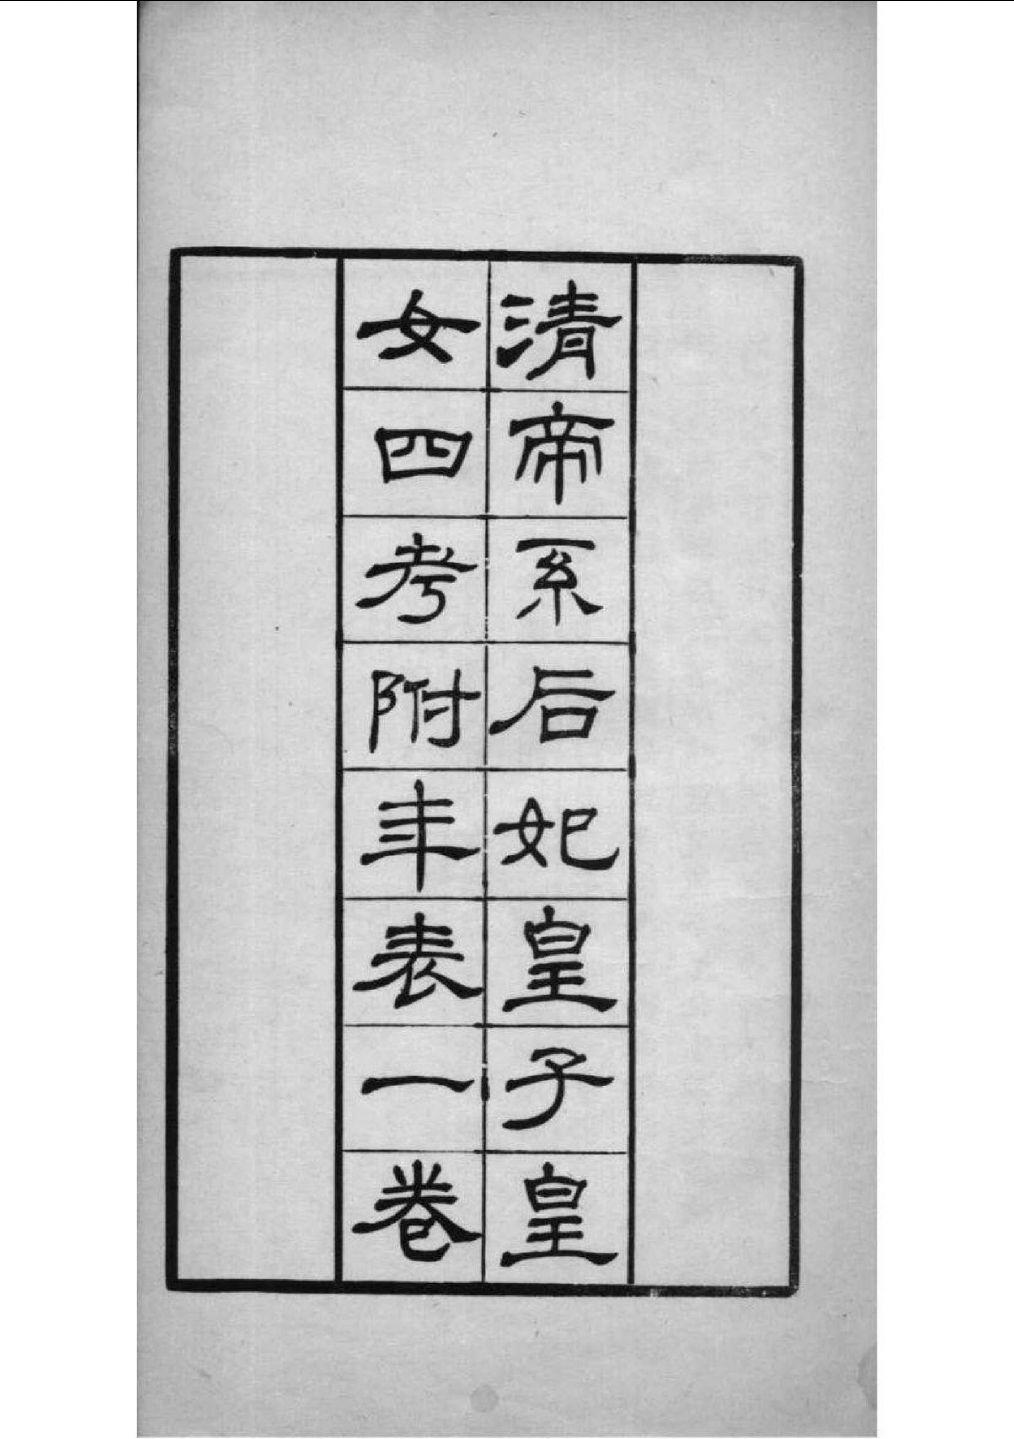 清帝系后妃皇子皇
女四考附年表一卷